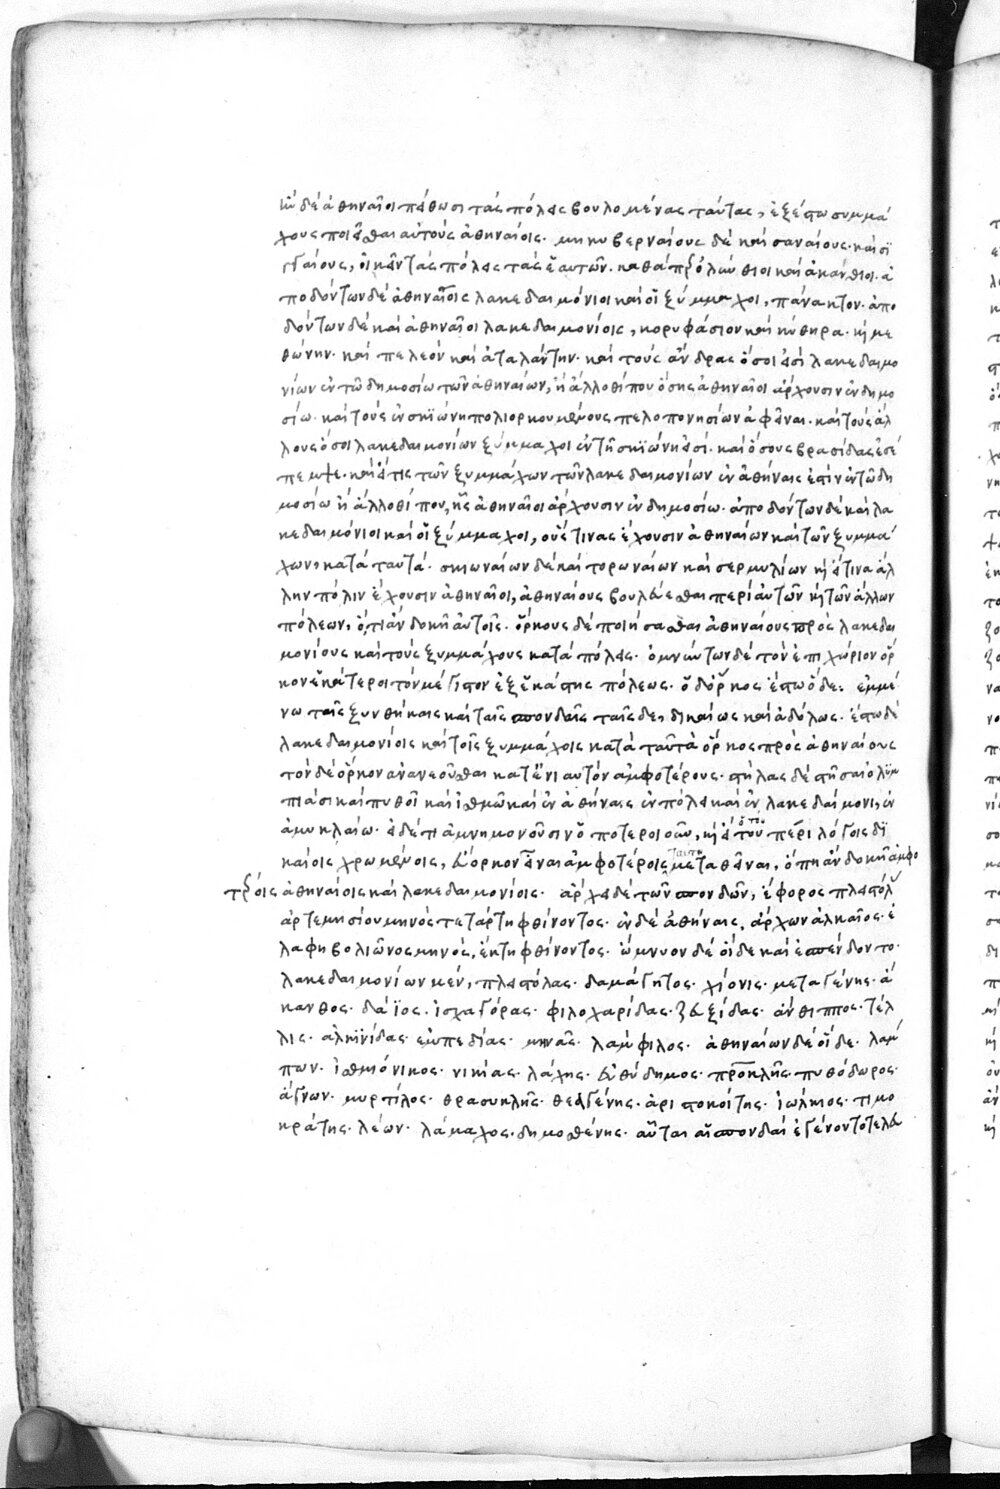 ἢν δὲ ἀθηναῖοι πείθωσι τὰς πόλεις βουλομένας ταύτας, ἐξέστω συμμά
χους ποιεῖσθαι αὐτοὺς ἀθηναίοις· μηκυβερναίους δὲ καὶ σαναίους· καὶ σι
γγαίους, οἰκεῖν τὰς πόλεις τὰς ἑαυτῶν. καθάπερ ὀλύνθιοι καὶ ἀκάνθιοι. ἀ
ποδόντων δὲ ἀθηναίοις λακεδαιμόνιοι καὶ οἱ ξύμμαχοι, πάνακτον. ἀπο
δόντων δὲ καὶ ἀθηναῖοι λακεδαιμονίοις, κορυφάσιον καὶ κύθηρα. καὶ με
θώνην. καὶ πτελεὸν καὶ ἀταλάντην. καὶ τοὺς ἄνδρας ὅσοι εἰσὶ λακεδαιμο
νίων ἐν τῶ δημοσίω τῶν ἀθηναίων, ἢ ἄλλοθί που ὅσης ἀθηναῖοι ἄρχουσιν ἐν δημο
σίω. καὶ τοὺς ἐν σκιώνη πολιορκουμένους πελοπονησίων ἀφεῖναι. καὶ τοὺς ἄλ
λους ὅσοι λακεδαιμονίων ξύμμαχοι ἐν τῆ σκιώνη εἰσί. καὶ ὅσους βρασίδας ἐσέ
πεμψε. καὶ εἴ τις τῶν ξυμμάχων τῶν λακεδαιμονίων ἐν ἀθήναις ἐστὶν ἐν τῶ δη
μοσίω ἢ ἄλλοθί που, ἧς ἀθηναῖοι ἄρχουσιν ἐν δημοσίω. ἀποδόντων δὲ καὶ λα
κεδαιμόνιοι καὶ οἱ ξύμμαχοι, οὕς τινας ἔχουσιν ἀθηναίων καὶ τῶν ξυμμά
χων, κατὰ ταὐτά. σκιωναίων δὲ καὶ τορωναίων καὶ σερμυλίων καὶ εἴ τινα ἄλ
λην πόλιν ἔχουσιν ἀθηναῖοι, ἀθηναίους βουλεύεσθαι περὶ αὐτῶν καὶ τῶν ἄλλων
πόλεων, ὅ,τι ἂν δοκῆ αὐτοῖς. ὅρκους δὲ ποιήσασθαι ἀθηναίους πρὸς λακεδαι
μονίους καὶ τοὺς ξυμμάχους κατὰ πόλεις. ὀμνύντων δὲ τὸν ἐπιχώριον ὅρ
κον ἑκάτεροι τὸν μέγιστον ἐξ ἑκάστης πόλεως. ὁ δ' ὅρκος ἔστω ὅδε: ἐμμέ
νω ταῖς ξυνθήκαις καὶ ταῖς σπονδαῖς ταῖσδε, δικαίως καὶ ἀδόλως. ἔστω δὲ
λακεδαιμονίοις καὶ τοῖς ξυμμάχοις κατὰ ταῦτὰ ὅρκος πρὸς ἀθηναίους
τὸν δὲ ὅρκον ἀνανεοῦσθαι κατ' ἐνιαυτὸν ἀμφοτέρους. στήλας δὲ στῆσαι ὀλυμ
πιάσι καὶ πυθοῖ καὶ ἰσθμῶ καὶ ἐν ἀθήναις ἐν πόλει καὶ ἐν λακεδαίμονι, ἐν
ἀμυκλαίω. εἰ δέ τι ἀμνημονοῦσιν ὁποτεροιοῦν, καὶ εἴ ὅτου περὶ λόγοις δι
καίοις χρωμένοις, εὔορκον εἶναι ἀμφοτέροις ταύτη μεταθεῖναι, ὅπη ἂν δοκῆ ἀμφο
τέροις ἀθηναίοις καὶ λακεδαιμονίοις. ἄρχει δὲ τῶν σπονδῶν, ἔφορος πλειστόλ
ἀρτεμησίου μηνὸς τετάρτη φθίνοντος. ἐν δὲ ἀθήναις, ἄρχων ἀλκαῖος· ἐ
λαφηβολιῶνος μηνὸς, ἕκτη φθίνοντος. ὤμνυον δὲ οἵδε καὶ ἐσπένδοντο.
λακεδαιμονίων μὲν, πλειστόλας. δαμάγητος. χίονις. μεταγένης. ἄ
κανθος. δάϊος. ἰσχαγόρας. φιλοχαρίδας. ζευξίδας. ἄνθιππος. τέλ
λις. ἀλκινίδας. ἐμπεδίας. μηνᾶς. λάμφιλος. ἀθηναίων δὲ οἵδε. λάμ
πων. ἰσθμιόνικος. νικίας. λάχης. εὐθύδημος. προκλῆς. πυθόδωρος.
ἅγνων. μυρτίλος. θρασυκλῆς. θεαγένης. ἀριστοκοίτης. ἰώλκιος. τιμο
κράτης. λέων. λάμαχος. δημοσθένης. αὗται αἱ σπονδαὶ ἐγένοντο τελευ